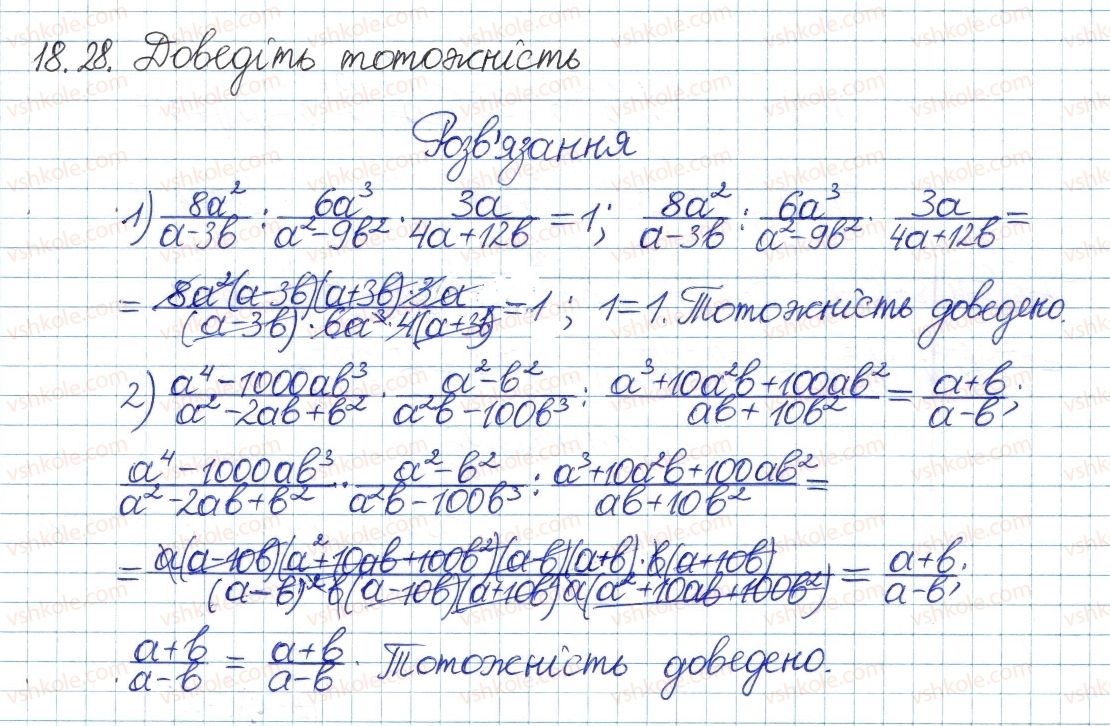 18.28. Доведіть тотожність
Розв'язання
1) 8a²/(a-3b) : 6a³/(a²-9b²) · 3a/(4a+12b) = 1; 8a²/(a-3b) : 6a³/(a²-9b²) · 3a/(4a+12b) =
= 8a²(a-3b)(a+3b)·3a/((a-3b)·6a³·4(a+3b)) = 1; 1=1. Тотожність доведено.
2) (a⁴-1000ab³)/(a²-2ab+b²) · (a²-b²)/(a²b-100b³) : (a³+10a²b+100ab²)/(ab+10b²) = (a+b)/(a-b);
(a⁴-1000ab³)/(a²-2ab+b²) · (a²-b²)/(a²b-100b³) : (a³+10a²b+100ab²)/(ab+10b²) =
= a(a-10b)(a²+10ab+100b²)(a-b)(a+b)·b(a+10b)/((a-b)²b(a-10b)(a+10b)a(a²+10ab+100b²)) = (a+b)/(a-b);
(a+b)/(a-b) = (a+b)/(a-b). Тотожність доведено.